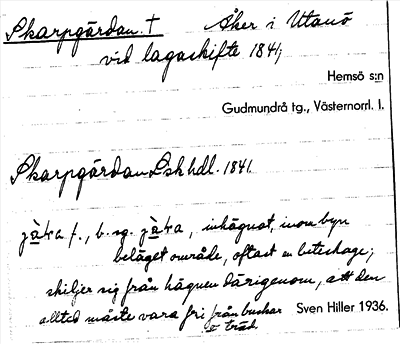 Skarpgärdan. † Åker i Utanö
vid lagaskifte 1841;
Hemsö s:n
Gudmundrå tg., Västernorrl. l.
Skarpgärdan Lskhdl. 1841.
jàka f., b. sg. jàka, inhägnat, inom byn
beläget område, oftast en beteshage;
skiljer sig från hägnen därigenom, att den
alltid måste vara fri från buskar
o träd. Sven Hiller 1936.